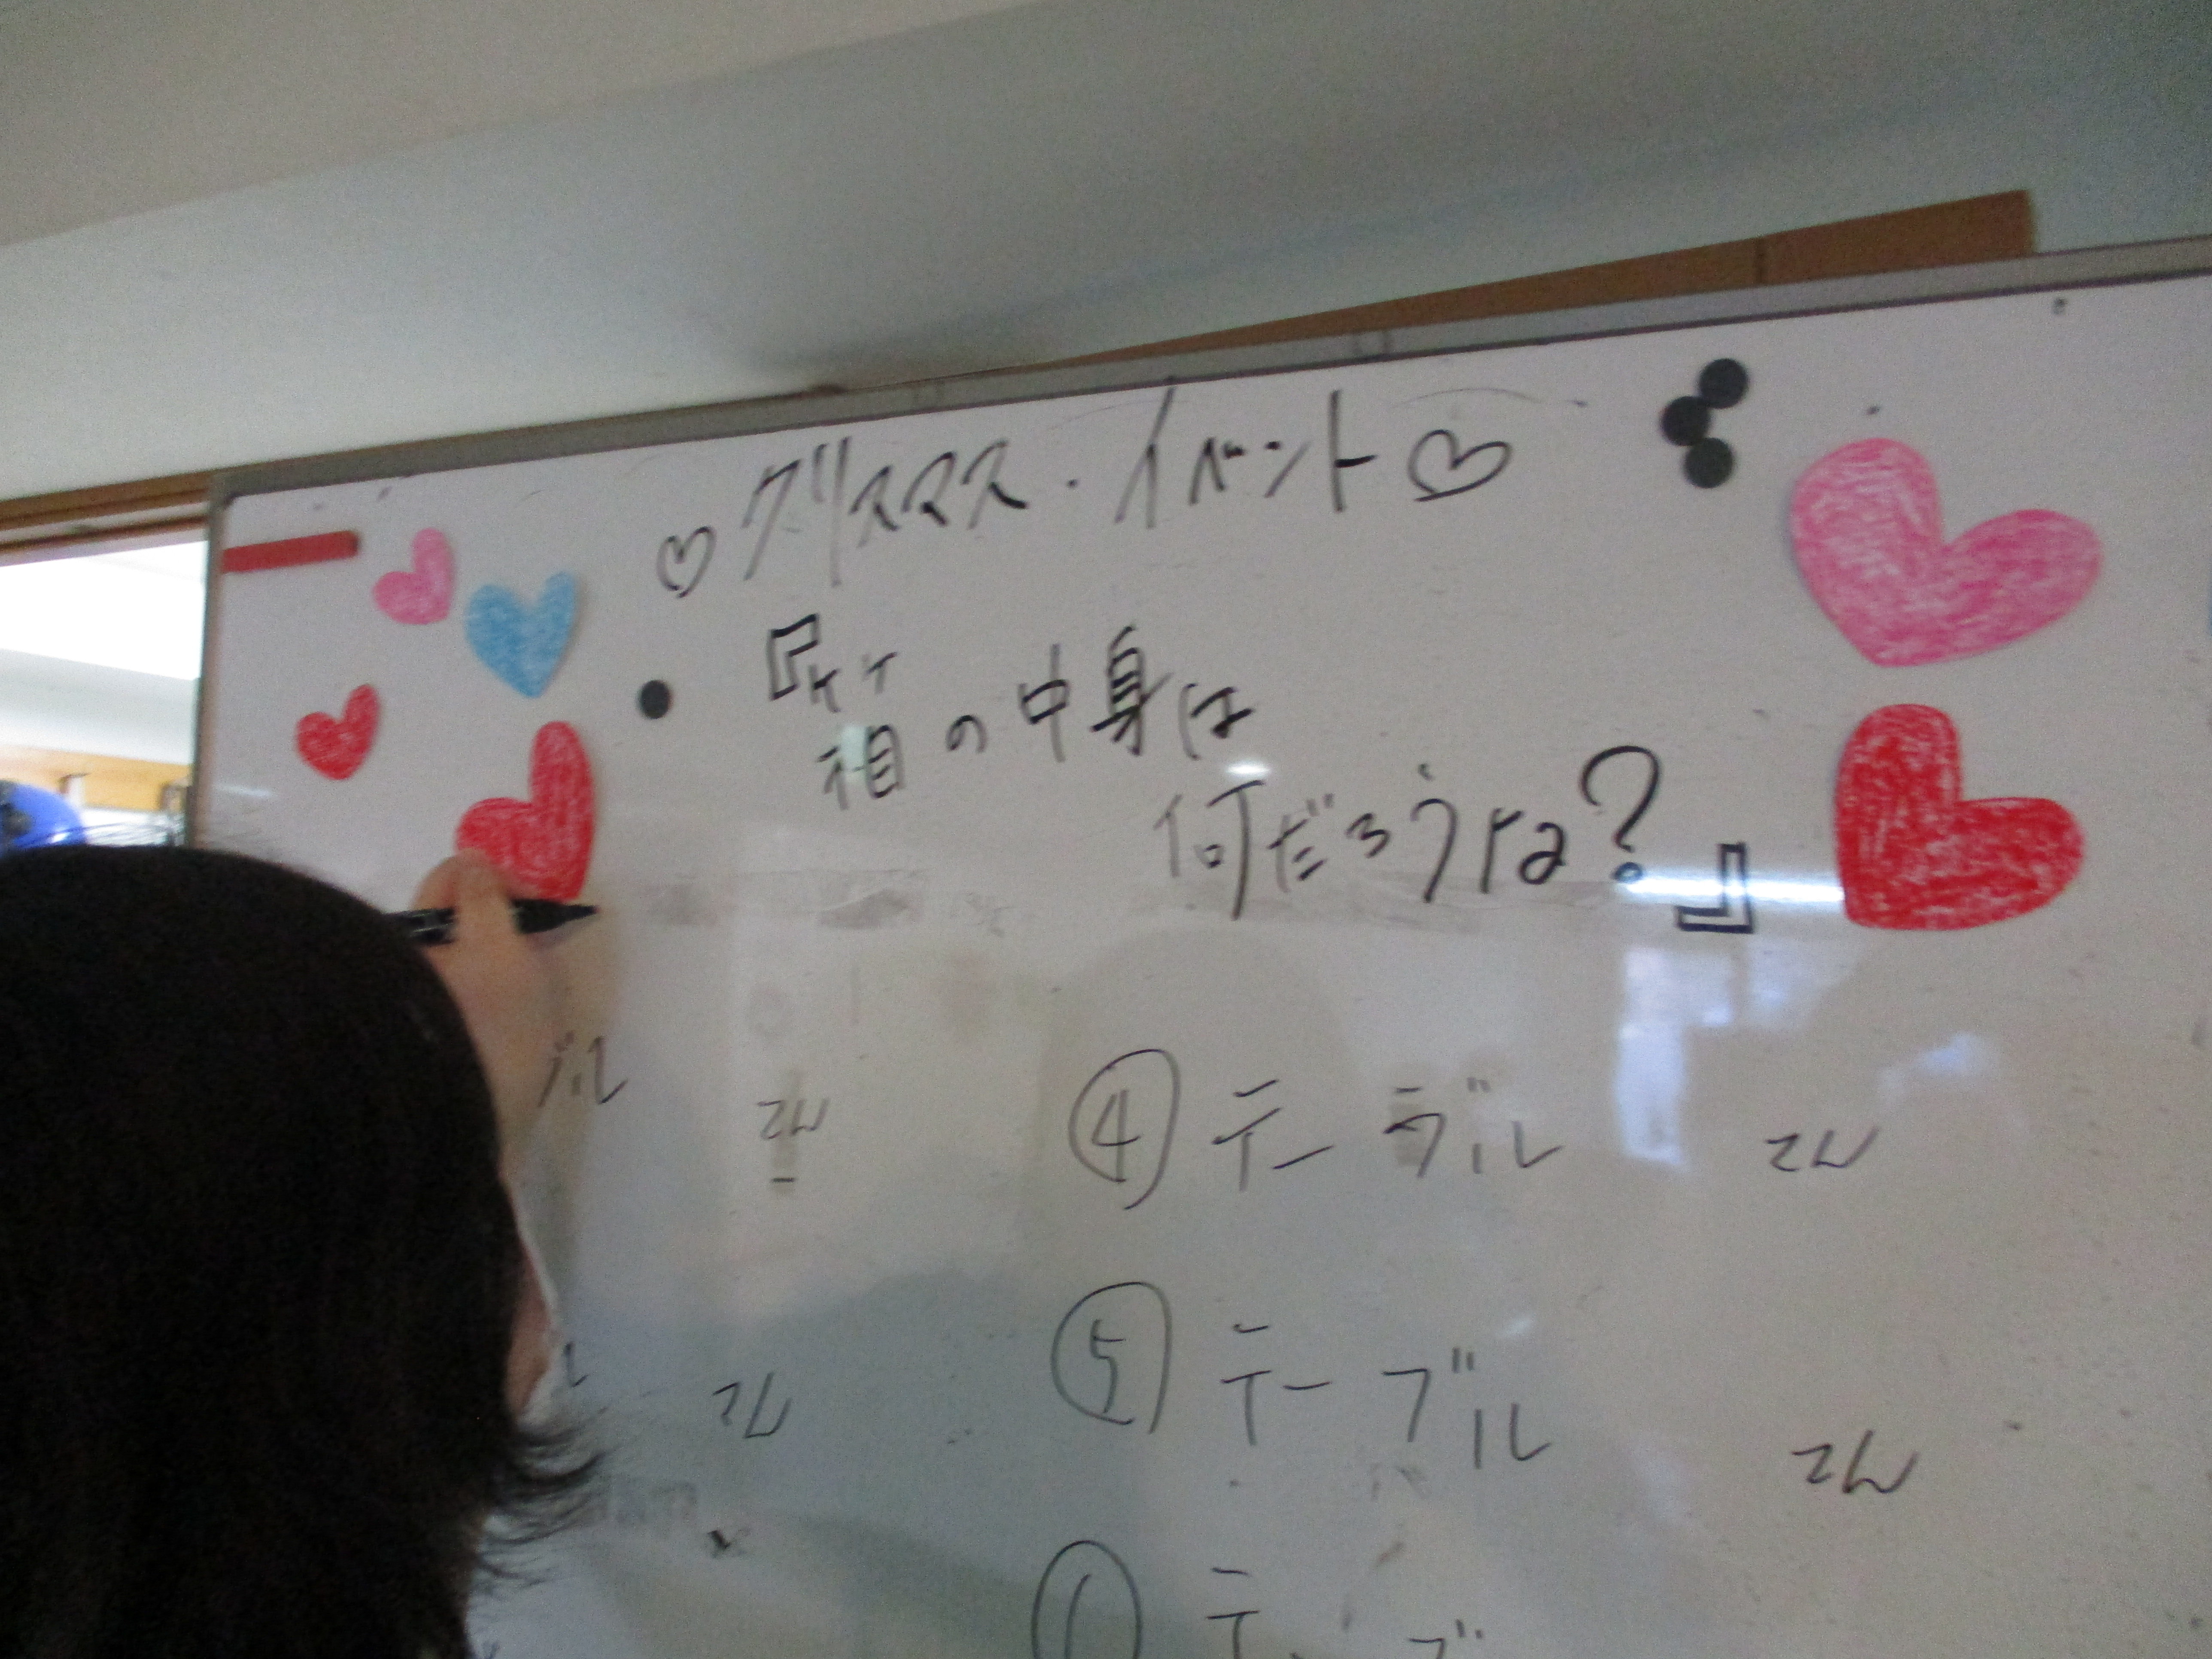 ♡クリスマス・イベント♡
『箱の中身は
何だろうな?』
ブル てん
④テーブル てん
てん
⑤テーブル てん
テーブ